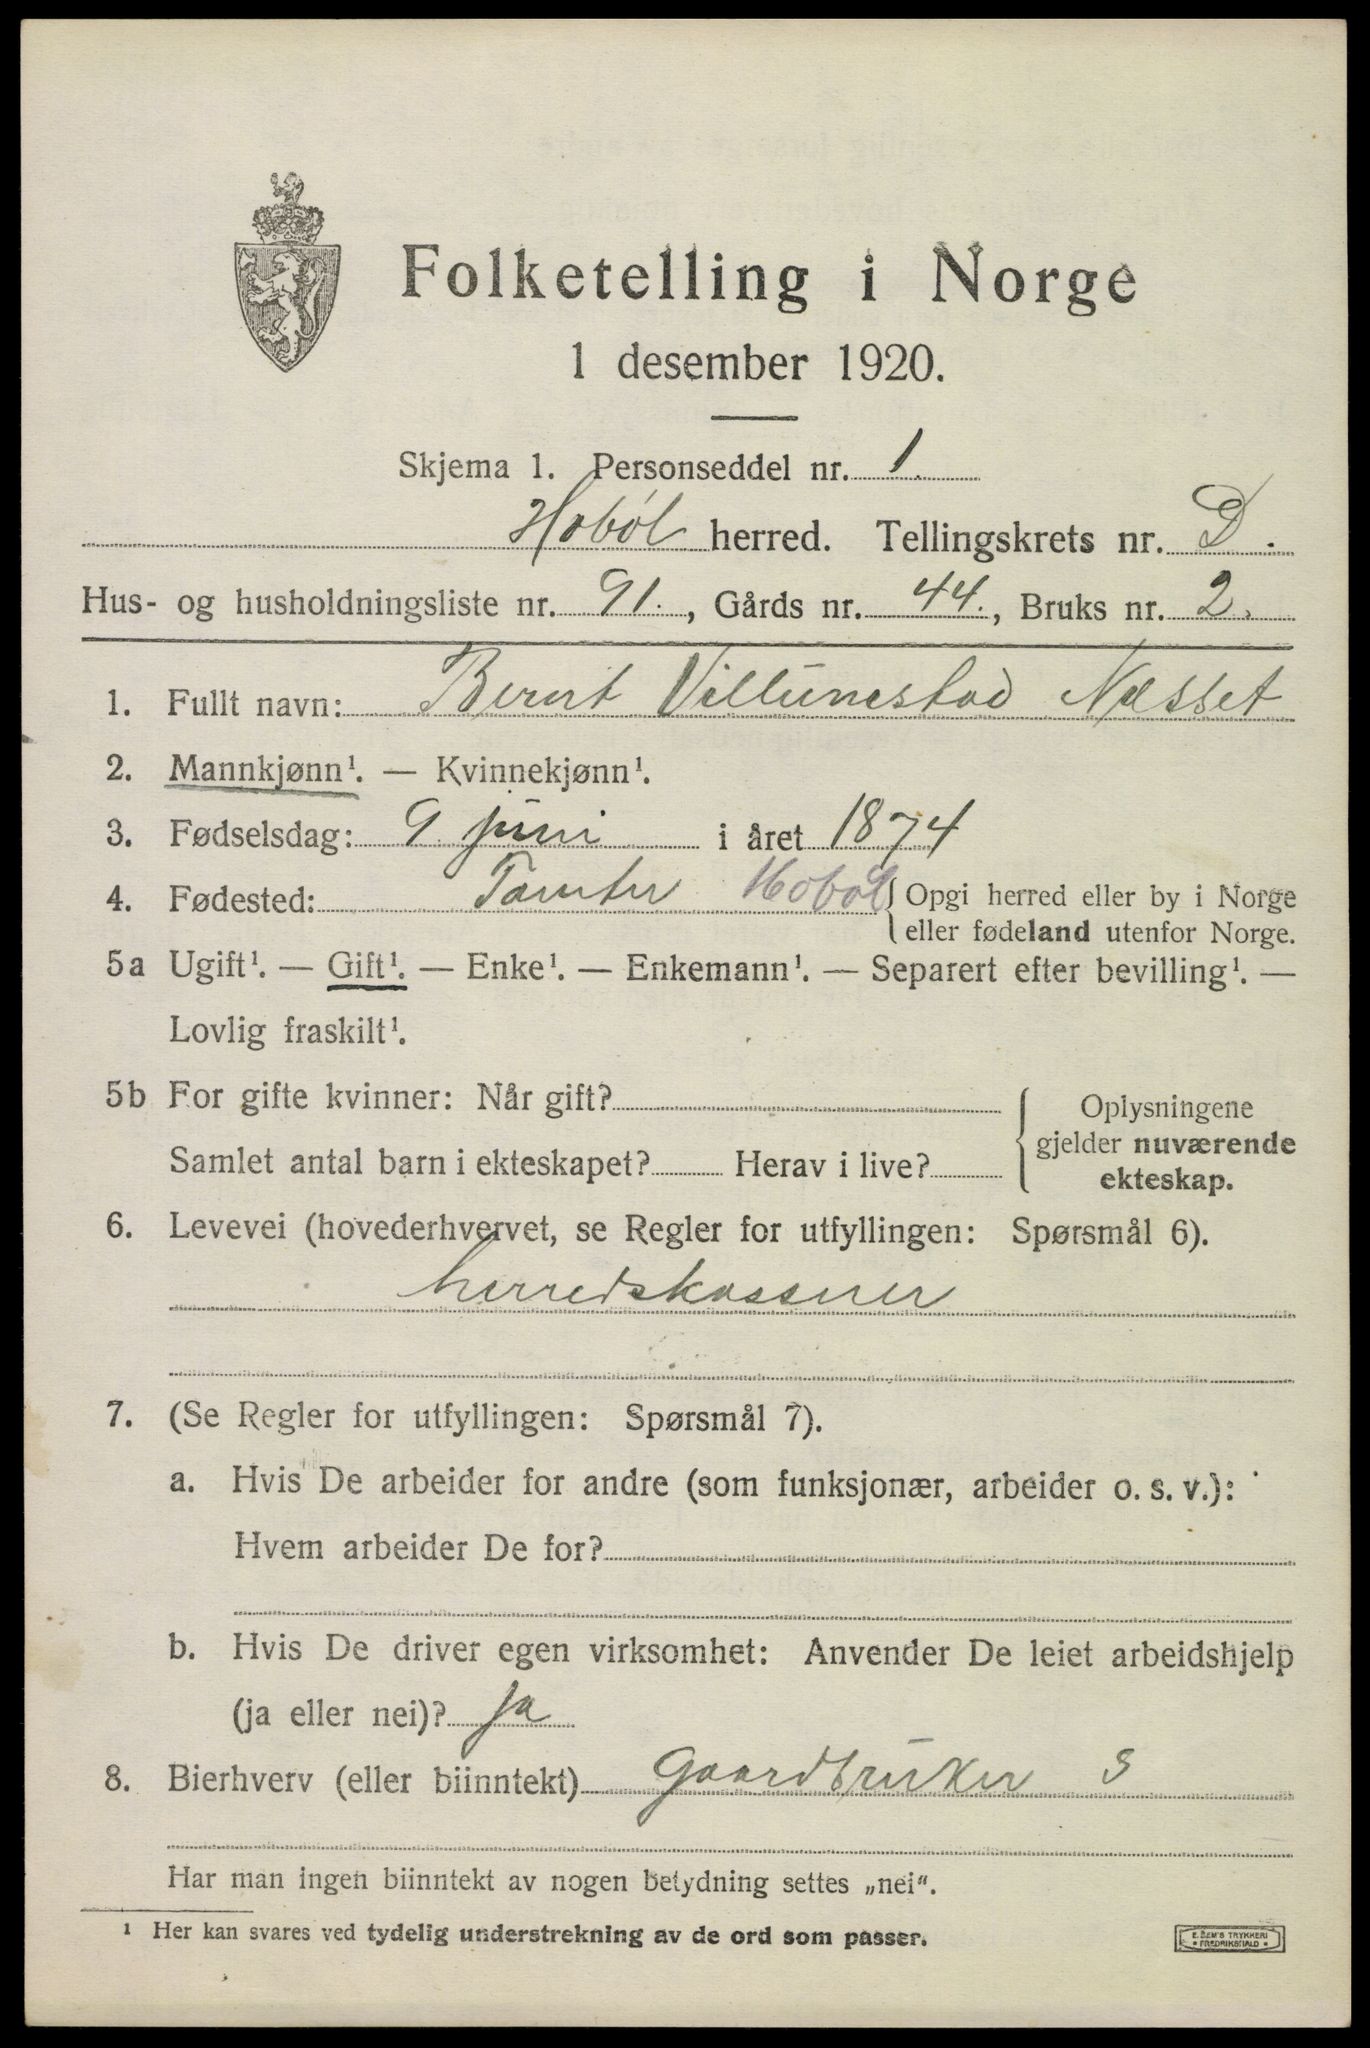 Folketelling i Norge
1 desember 1920.
Skjema 1. Personseddel nr. 1.
Hobøl herred. Tellingskrets nr. D.
Hus- og husholdningsliste nr. 91., Gårds nr. 44., Bruks nr. 2.
1. Fullt navn: Bernt Villunestad Næsset
2. Mannkjønn¹. — Kvinnekjønn¹.
3. Fødselsdag: 9 juni i året 1874
4. Fødested: Tomter Hobøl { Opgi herred eller by i Norge
eller fødeland utenfor Norge.
5a Ugift¹. — Gift¹. — Enke¹. — Enkemann¹. — Separert efter bevilling¹. —
Lovlig fraskilt¹.
5b For gifte kvinner: Når gift?
Samlet antal barn i ekteskapet? Herav i live?
{ Oplysningene
gjelder nuværende
ekteskap.
6. Levevei (hovederhvervet, se Regler for utfyllingen: Spørsmål 6).
herredskasserer
7. (Se Regler for utfyllingen: Spørsmål 7).
a. Hvis De arbeider for andre (som funksjonær, arbeider o. s. v.):
Hvem arbeider De for?
b. Hvis De driver egen virksomhet: Anvender De leiet arbeidshjelp
(ja eller nei)? ja
8. Bierhverv (eller biinntekt) Gaardbruker S
Har man ingen biinntekt av nogen betydning settes „nei".
¹ Her kan svares ved tydelig understrekning av de ord som passer.
E. SEM'S TRYKKERI
• FREDRIKSHALD •